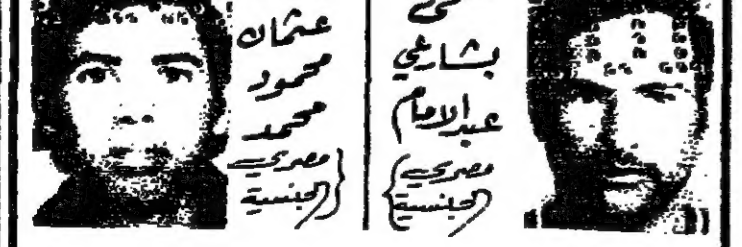 بشارعي
عبد الامام
(مصري
الجنسية)
عثمان
محمود
محمد
(مصري
الجنسية)